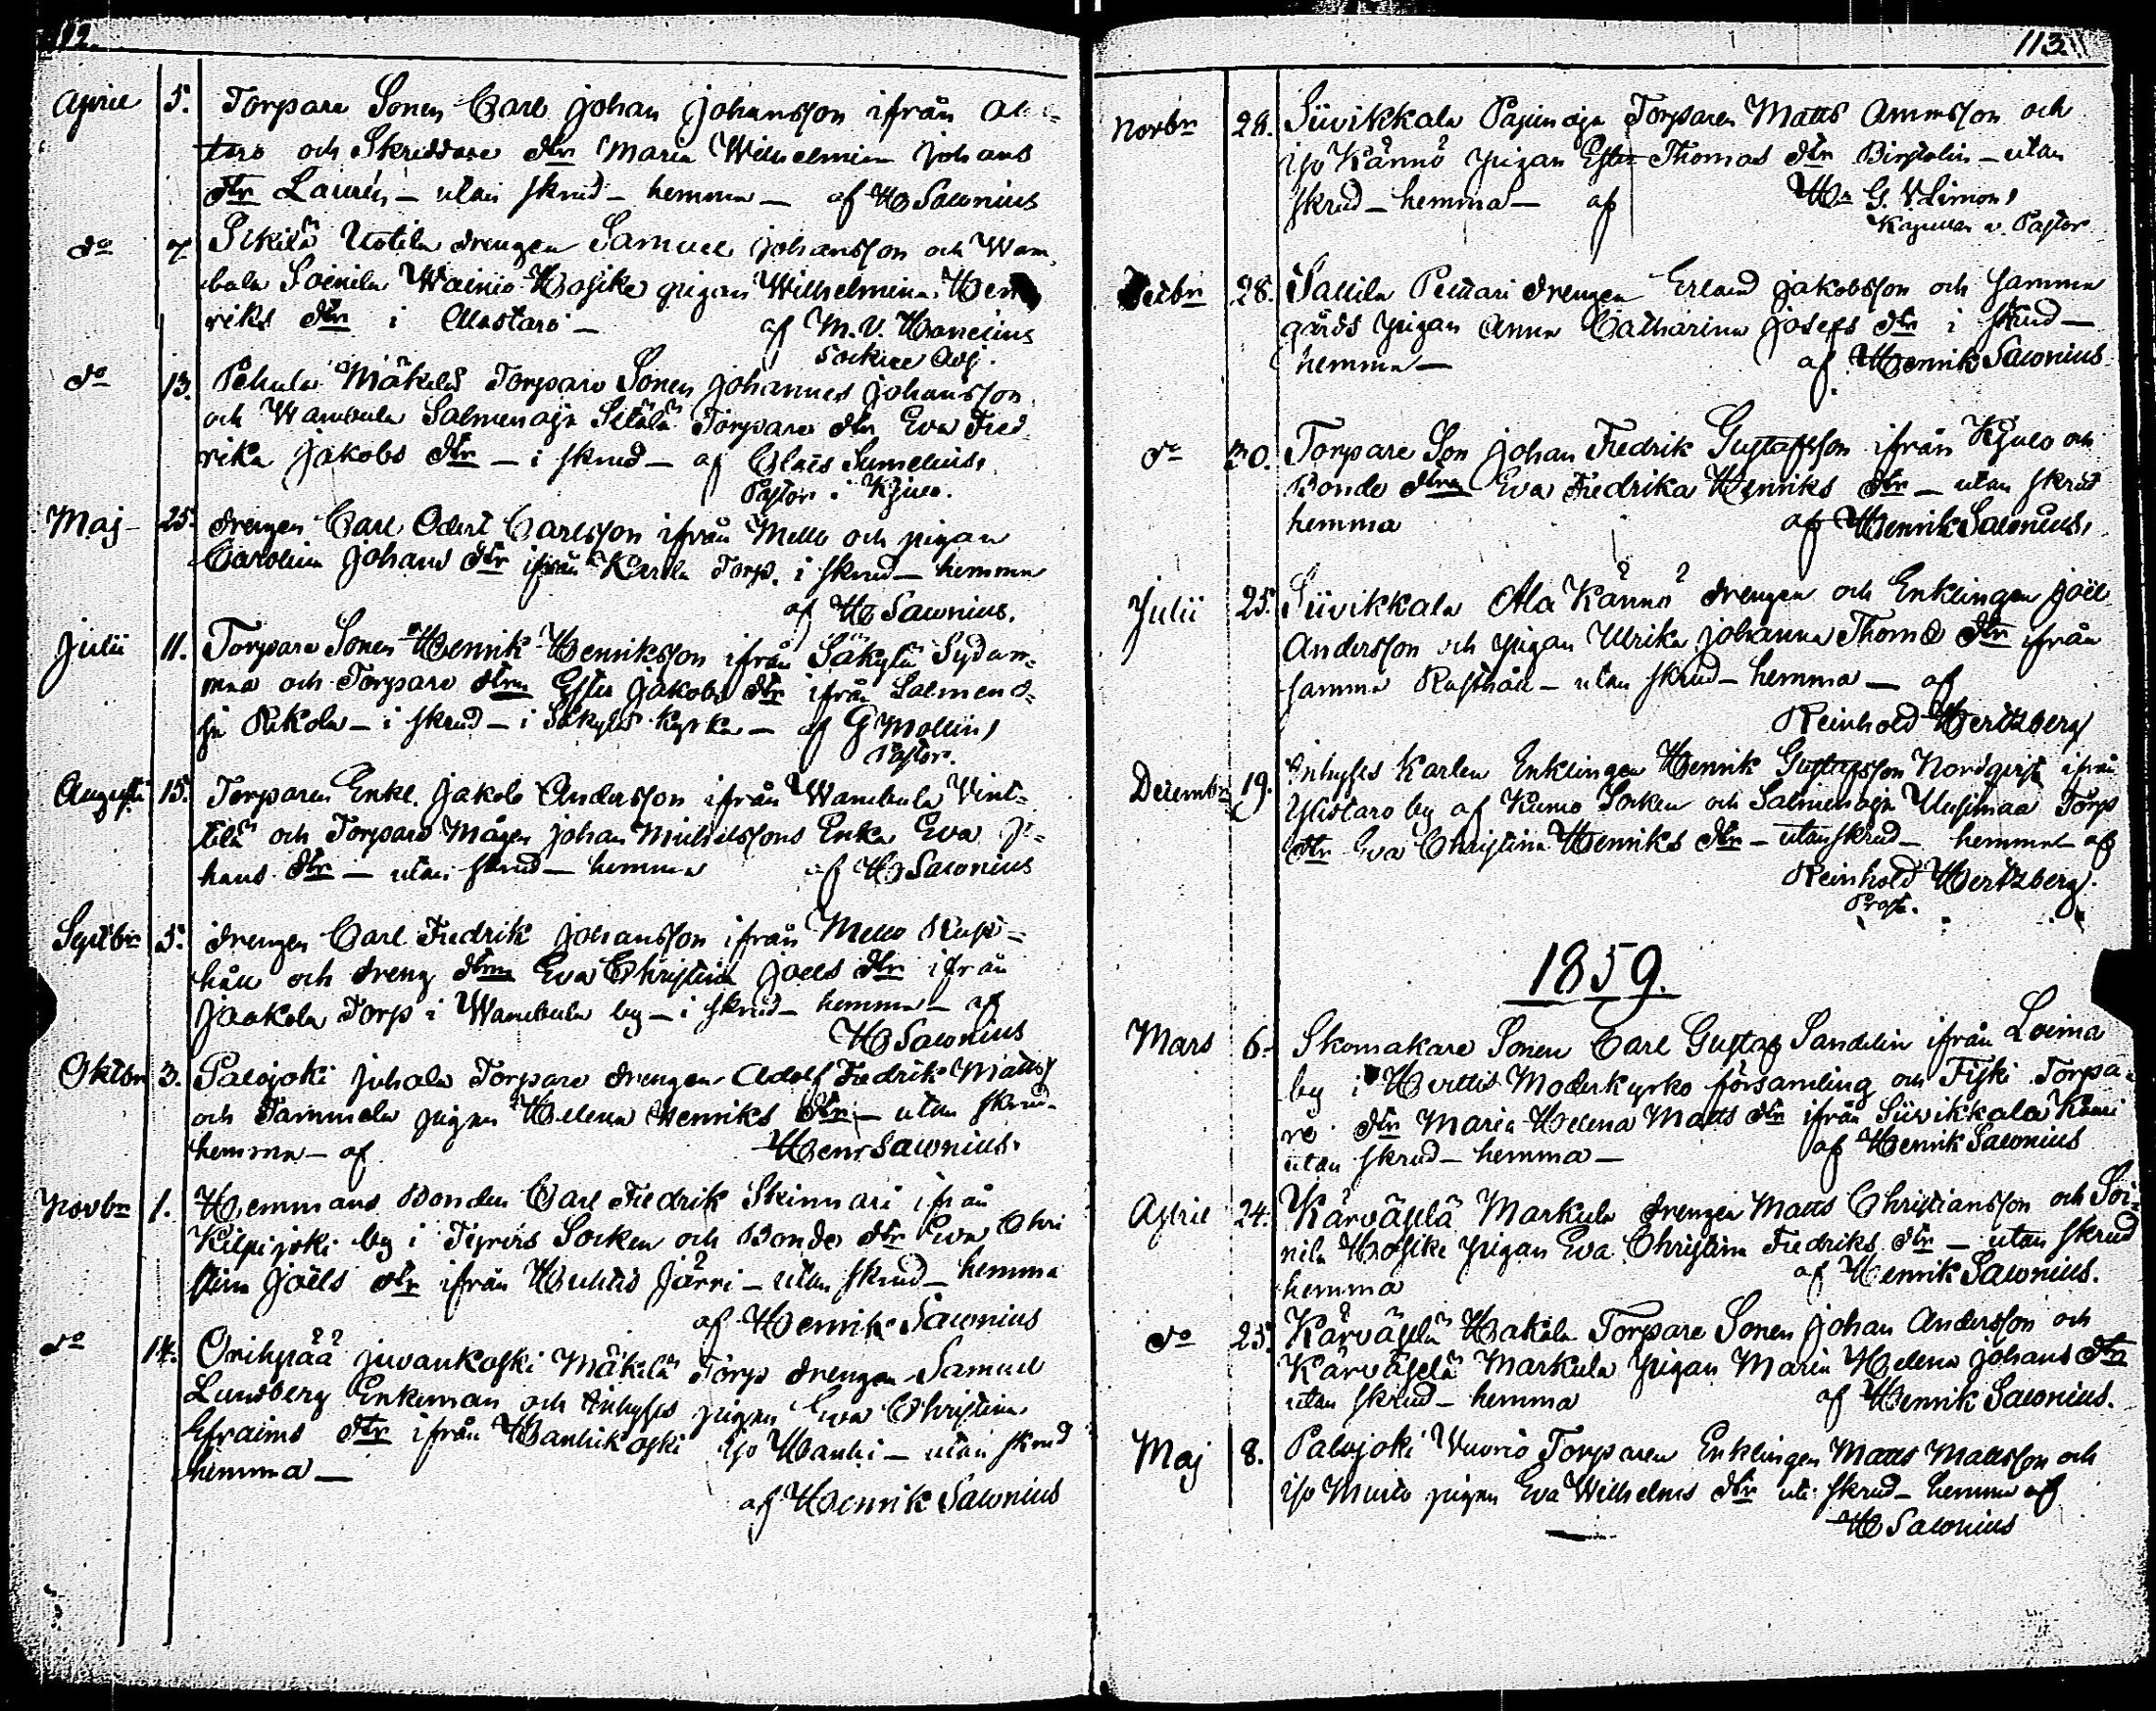 112.
April 5. Torpare Sonen Carl Johan Johansson ifrån Al
taro och Skräddare dtr Maria Wilhelmina Johans
dtr Laurén – utan skrud – hemma – af H Salonius
do 7 Uotila drengen Samuel Johansson och Wam
bula Soinila Wainio Hosike pigan Wilhelmina Hen
riks dtr i Allastaro – af M. V. Honelius
Sockne Adj.
do 13. Pehula Mäkelä Torpare Sonen Johannes Johansson
och Wambula Salmenoja Torpare dtr Eva Fred
rika Jakobs dtr – i skrud – af Claës Sumelius,
Pastor i Kjulo.
Maj 25. drengen Carl Odert Carlsson ifrån Mello och pigan
Carolina Johans dtr ifrån Torp. i skrud – hemma
af H Salonius.
Julii 11. Torpare Sonen Henrik Henriksson ifrån Säkylä Sydän-
maa och Torpare dtren Ester Jakobs dtr ifrån Salmeno-
ja – i skrud – i Säkylä kyrka – af G Mollin,
Pastor.
Augusti 15. Torparen Enkl. Jakob Andersson ifrån Wambula Vint-
tilä och Torpare Mågen Johan Michelssons Enka Eva Jo-
hans dtr – utan skrud – hemma af H Salonius
Septbr 5. drengen Carl Fredrik Johansson ifrån Mello Rust-
håll och dreng dtren Eva Christina Joels dtr ifrån
Jaakola Torp i Wambula by – i skrud – hemma – af
H Salonius
Oktbr 3. Palojoki Juhala Torpare drengen Adolf Fredrik Matts
och Tammela pigan Helena Henriks dtr – utan skrud
hemma – af Henr Salonius.
Novbr 1. Hemmans Bonden Carl Fredrik Skinnari ifrån
Kilpijoki by i Tyrvis Socken och Bonde dtr Eva Chri
stina Joëls dtr ifrån Huhtis Järvi – utan skrud – hemma
af Henrik Salonius
do 14. Orihpää Juvankoski Mäkelä Torp drengen Samuel
Lundberg Enkeman och Inhyses pigan Eva Christina
Efraims dtr ifrån Hanhikoski Iso Hanhi – utan skrud
hemma –
af Henrik Salonius
113.
Novbr 28. Siivikkala Pajunoja Torparen Matts och
Iso Kännö pigan Ester Thomas dtr – utan
skrud – hemma – af G. Limon,
Kapellan v. Pastor
28. Sallila Pelttari drengen Erland Jakobsson och samma
gårds pigan Anna Catharina Josefs dtr i skrud –
hemma – af Henrik Salonius.
do 30. Torpare Son Johan Fredrik Gustafsson ifrån Kjulo och
Bonde dtren Eva Fredrika Henriks dtr – utan skrud
hemma af Henrik Salonius,
Julii 25. Siivikkala Ala Kännö drengen och Enklingen Joël
Andersson och pigan Ulrika Johanna Thoms dtr ifrån
samma Rusthåll – utan skrud – hemma – af
Reinhold Hertzberg
Decembr 19. Inhyses Karlen Enklingen Henrik Gustafsson Nordqvist ifrån
Ylistaro by af Kumo Socken och Salmenoja Uusimaa Torp
dtr Eva Christina Henriks dtr – utan skrud – hemma af
Reinhold Hertzberg.
Prost.
1859.
Mars 6. Skomakare Sonen Carl Gustaf Sandelin ifrån Loima
by i Hvittis Moderkyrko församling och Fiski Torpa-
re dtr Maria Helena Matts dtr ifrån Siivikkala
utan skrud – hemma – af Henrik Salonius
April 24. Kärväselä Markula drengen Matts Christiansson och Soi-
nila Hosike pigan Eva Christina Fredriks dtr – utan skrud
hemma af Henrik Salonius.
do 25. Kärväselä Hakala Torpare Sonen Johan Andersson och
Kärväselä Markula pigan Maria Helena Johans dtr
utan skrud – hemma af Henrik Salonius.
Maj 8. Palojoki Vuorio Torparen Enklingen Matts Mattsson och
Iso Murto pigan Eva Wilhelms dtr utan skrud – hemma af
H Salonius